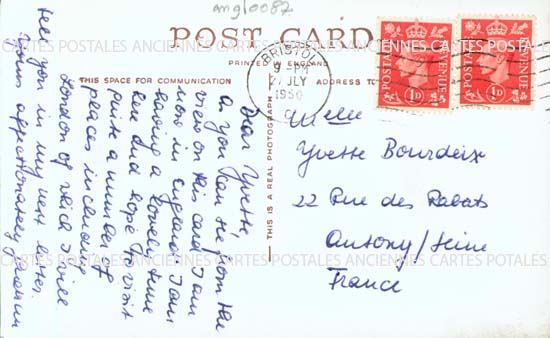 anglo087
POST CARD
PRINTED IN ENGLAND
THIS SPACE FOR COMMUNICATION
ADDRESS TO
BRISTOL
9 - PM
27 JLY
1950
POSTAGE REVENUE
1D
POSTAGE REVENUE
1D
CARTES POSTALES ANCIENNES CARTES POSTALES ANCIENNES CARTES POSTALES
Dear Yvette,
As you can see from the
view on this card I am
now in England. I am
having a lovely time
here and hope to visit
quite a number of
places including
London of which I will
tell you in my next letter.
Yours affectionately
THIS IS A REAL PHOTOGRAPH
Melle
Yvette Bourdeix
22 Rue des Rabats
Antony / Seine
France
CARTES POSTALES ANCIENNES CARTES POSTALES ANCIENNES CARTES POSTALES